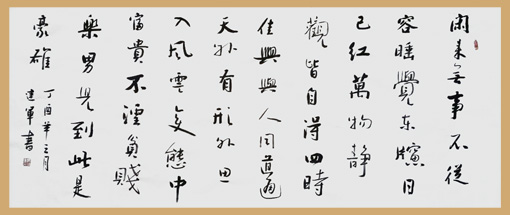 閑来无事不從
容睡覺東窗日
已紅萬物靜
觀皆自得四時
佳興與人同道通
天地有形外思
入風雲変態中
富貴不淫貧賤
樂男兒到此是
豪雄
丁酉年三月
建軍書